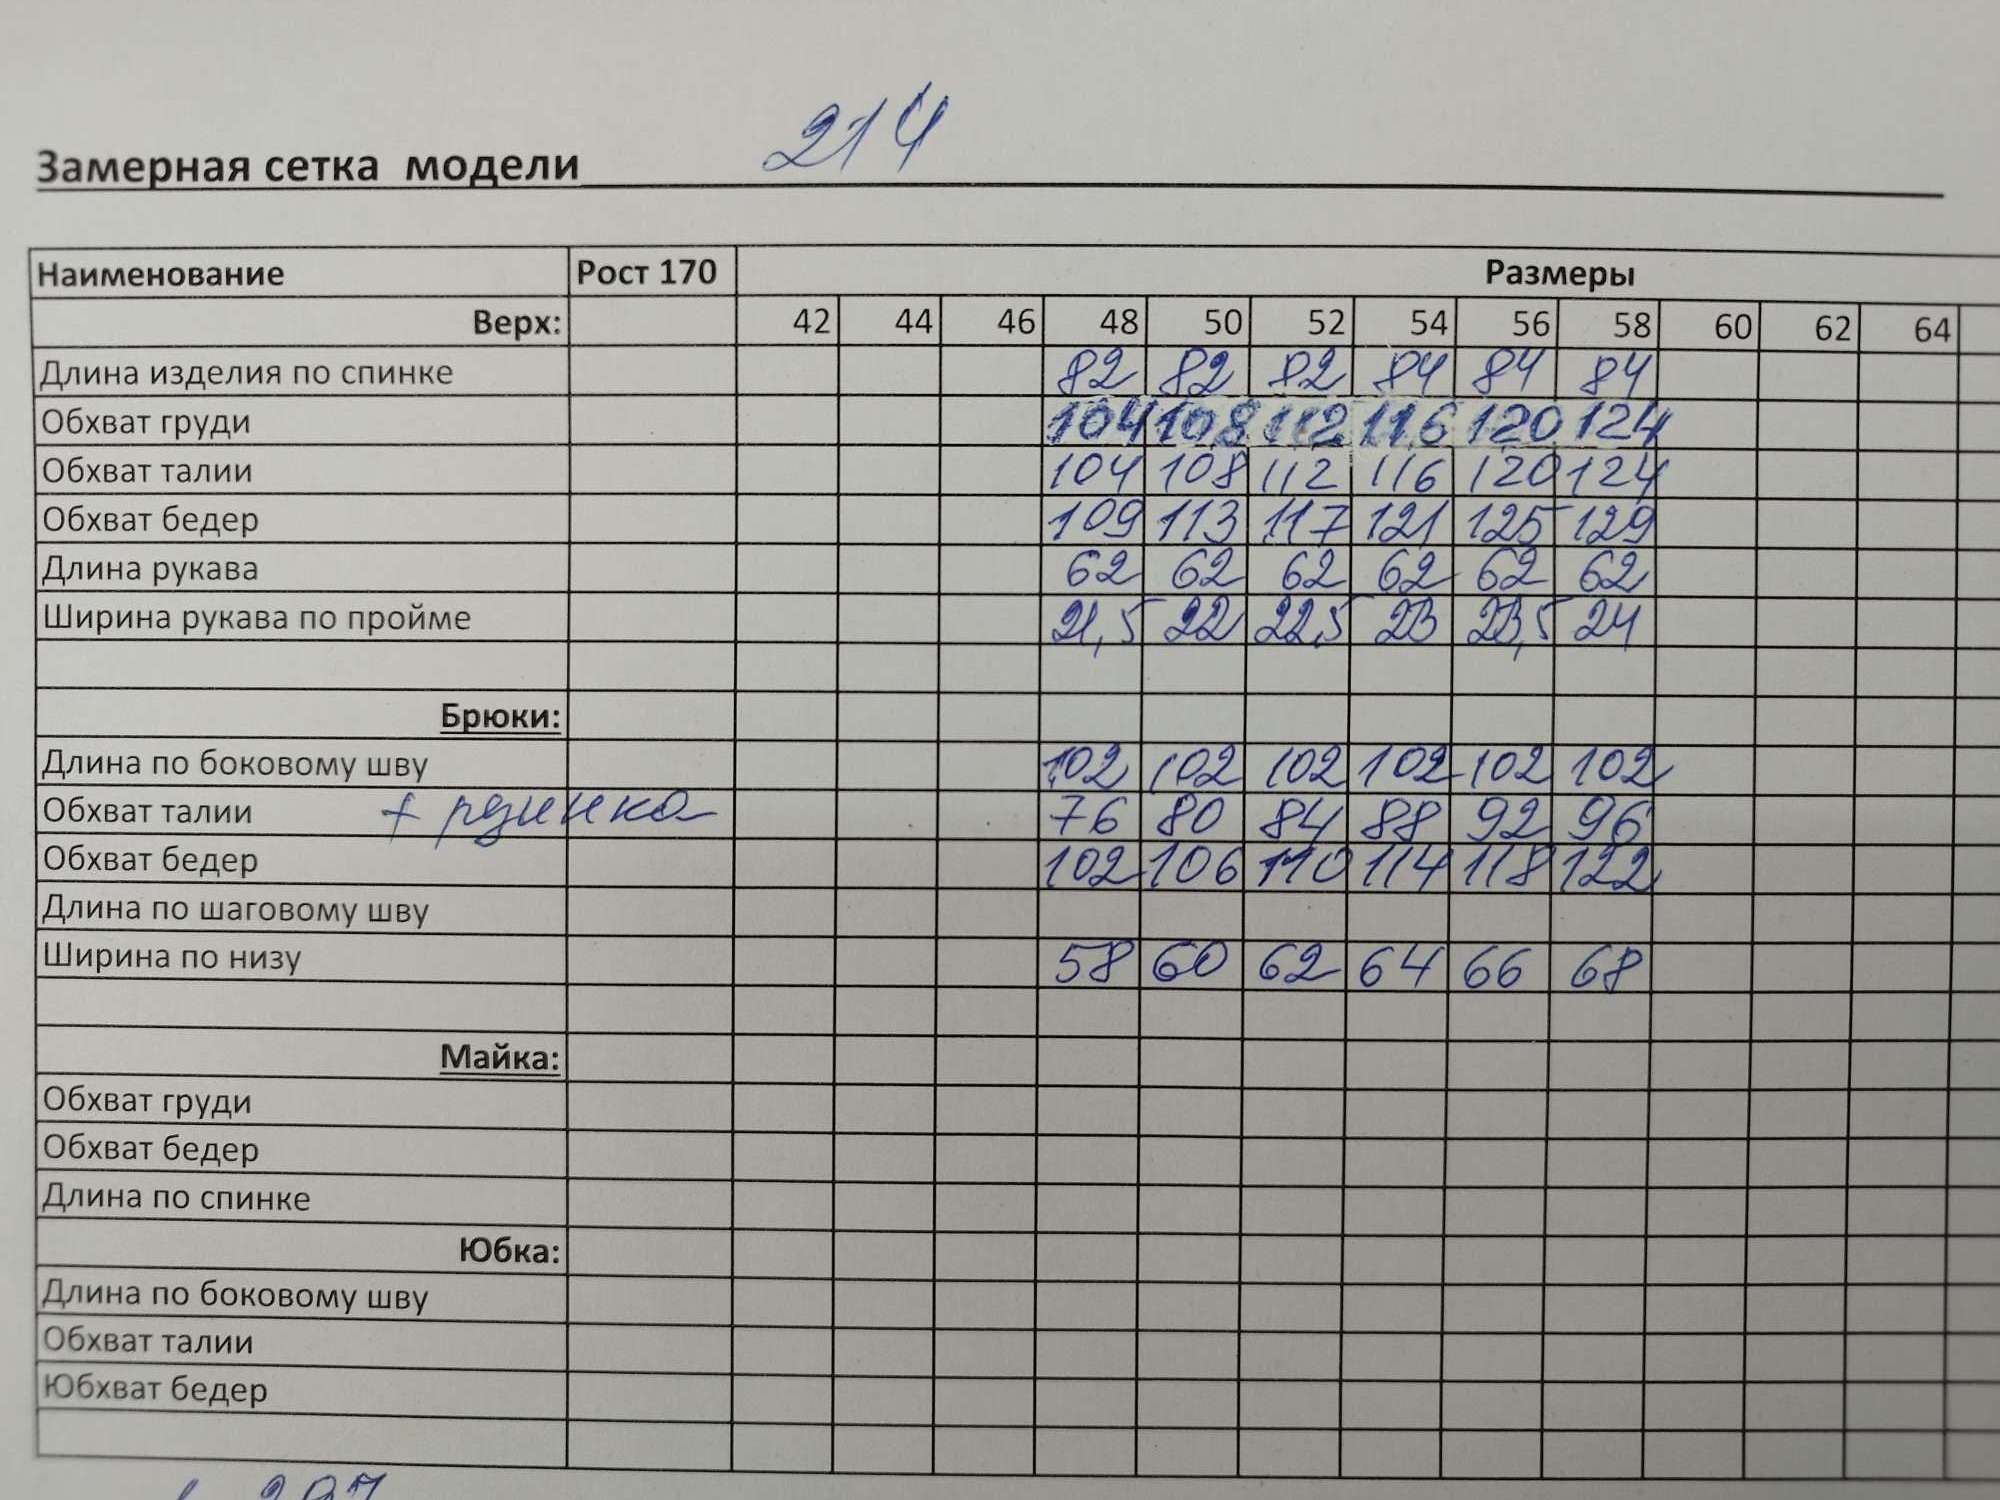 Замерная сетка модели 214
Наименование Рост 170 Размеры
Верх: 42 44 46 48 50 52 54 56 58 60 62 64
Длина изделия по спинке 82 82 82 84 84 84
Обхват груди 104 108 112 116 120 124
Обхват талии 104 108 112 116 120 124
Обхват бедер 109 113 117 121 125 129
Длина рукава 62 62 62 62 62 62
Ширина рукава по пройме 21,5 22 22,5 23 23,5 24
Брюки:
Длина по боковому шву 102 102 102 102 102 102
Обхват талии + резинка 76 80 84 88 92 96
Обхват бедер 102 106 110 114 118 122
Длина по шаговому шву
Ширина по низу 58 60 62 64 66 68
Майка:
Обхват груди
Обхват бедер
Длина по спинке
Юбка:
Длина по боковому шву
Обхват талии
Юбхват бедер